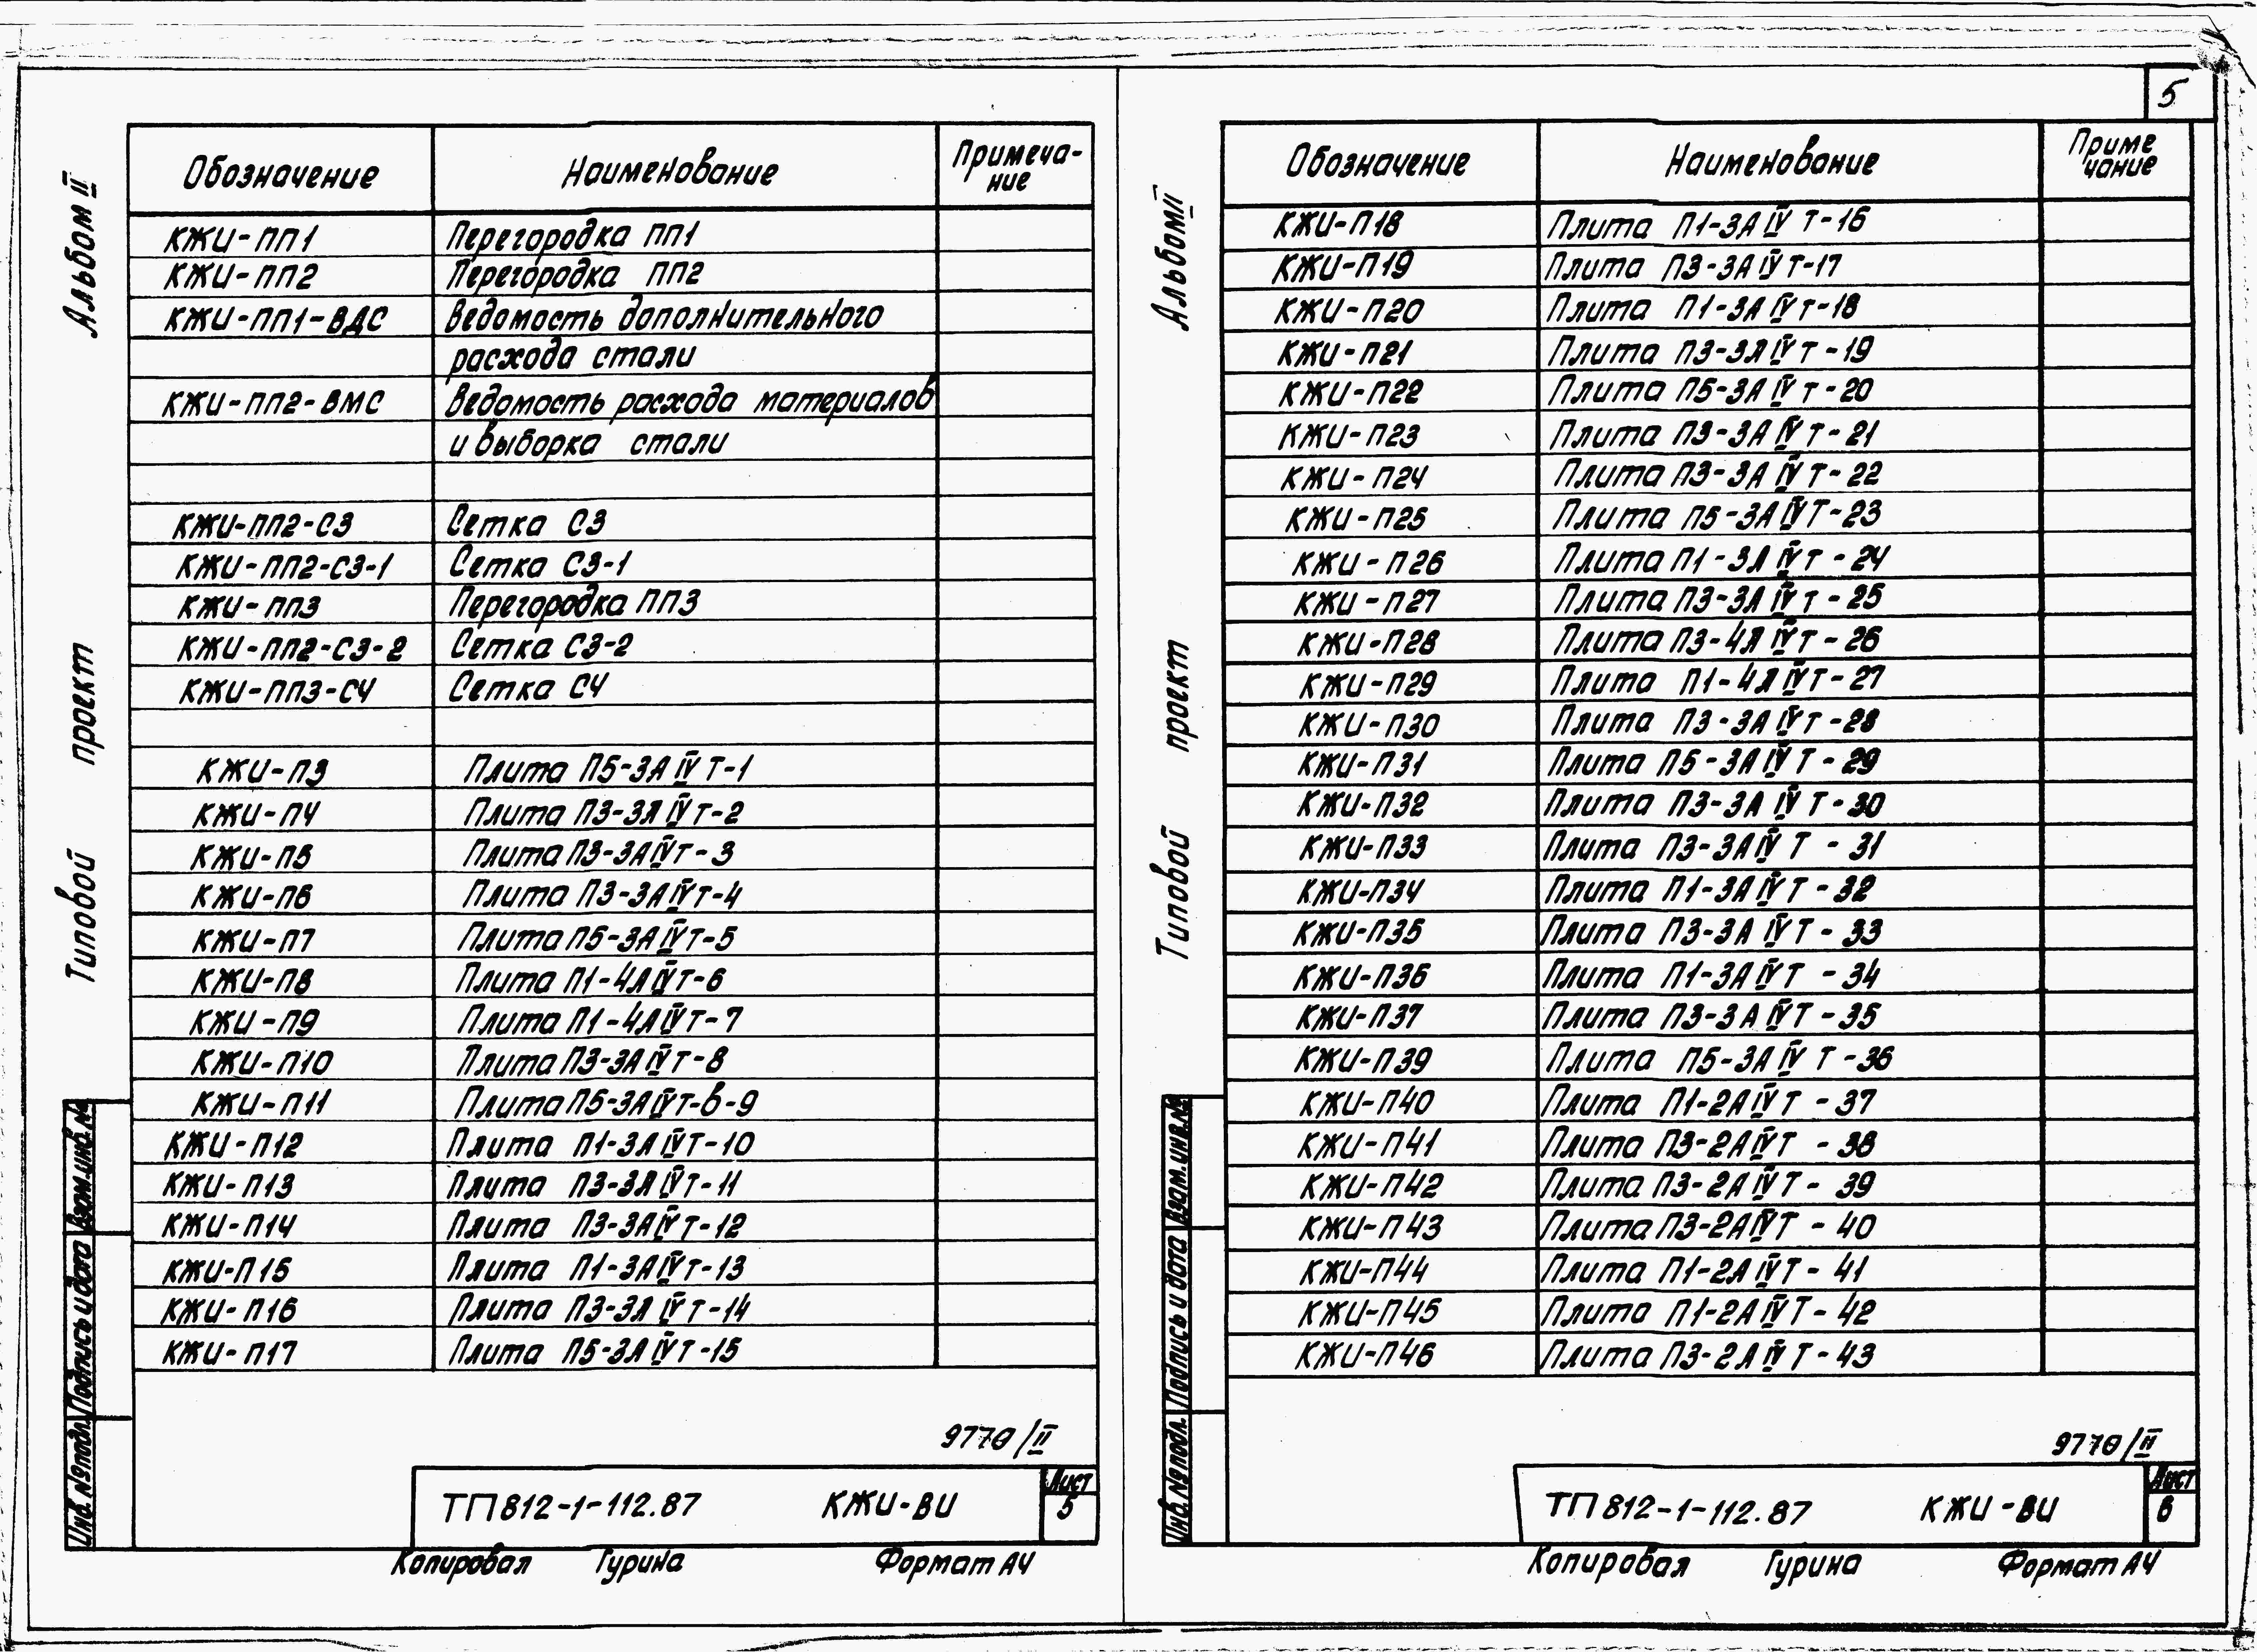 5
Альбом II
Типовой проект
Обозначение Наименование Примеча-
ние
КЖИ-ПП1 Перегородка ПП1
КЖИ-ПП2 Перегородка ПП2
КЖИ-ПП1-ВДС Ведомость дополнительного
расхода стали
КЖИ-ПП2-ВМС Ведомость расхода материалов
и выборка стали
КЖИ-ПП2-С3 Сетка С3
КЖИ-ПП2-С3-1 Сетка С3-1
КЖИ-ПП3 Перегородка ПП3
КЖИ-ПП2-С3-2 Сетка С3-2
КЖИ-ПП3-С4 Сетка С4
КЖИ-П3 Плита П5-3АIVТ-1
КЖИ-П4 Плита П3-3АIVт-2
КЖИ-П5 Плита П3-3АIVт-3
КЖИ-П6 Плита П3-3АIVт-4
КЖИ-П7 Плита П5-3АIVт-5
КЖИ-П8 Плита П1-4АIVт-6
КЖИ-П9 Плита П1-4АIVт-7
КЖИ-П10 Плита П3-3АIVт-8
КЖИ-П11 Плита П5-3АIVт-в-9
КЖИ-П12 Плита П1-3АIVт-10
КЖИ-П13 Плита П3-3АIVт-11
КЖИ-П14 Плита П3-3АIVт-12
КЖИ-П15 Плита П1-3АIVт-13
КЖИ-П16 Плита П3-3АIVт-14
КЖИ-П17 Плита П5-3АIVт-15
Взам.инв.№
Подпись и дата
Инв.№подл.
9770/II
ТП 812-1-112.87 КЖИ-ВИ Лист
5
Копировал Гурина Формат А4
Альбом II
Типовой проект
Обозначение Наименование Приме
чание
КЖИ-П18 Плита П1-3АIVТ-16
КЖИ-П19 Плита П3-3АIVТ-17
КЖИ-П20 Плита П1-3АIVт-18
КЖИ-П21 Плита П3-3АIVт-19
КЖИ-П22 Плита П5-3АIVт-20
КЖИ-П23 Плита П3-3АIVТ-21
КЖИ-П24 Плита П3-3АIVт-22
КЖИ-П25 Плита П5-3АIVТ-23
КЖИ-П26 Плита П1-3АIVт-24
КЖИ-П27 Плита П3-3АIVт-25
КЖИ-П28 Плита П3-4АIVт-26
КЖИ-П29 Плита П1-4АIVТ-27
КЖИ-П30 Плита П3-3АIVт-28
КЖИ-П31 Плита П5-3АIVТ-29
КЖИ-П32 Плита П3-3АIVТ-30
КЖИ-П33 Плита П3-3АIVТ-31
КЖИ-П34 Плита П1-3АIVТ-32
КЖИ-П35 Плита П3-3АIVТ-33
КЖИ-П36 Плита П1-3АIVТ-34
КЖИ-П37 Плита П3-3АIVТ-35
КЖИ-П39 Плита П5-3АIVТ-36
КЖИ-П40 Плита П1-2АIVТ-37
КЖИ-П41 Плита П3-2АIVТ-38
КЖИ-П42 Плита П3-2АIVТ-39
КЖИ-П43 Плита П3-2АIVТ-40
КЖИ-П44 Плита П1-2АIVТ-41
КЖИ-П45 Плита П1-2АIVТ-42
КЖИ-П46 Плита П3-2АIVТ-43
Взам.инв.№
Подпись и дата
Инв.№подл.
9770/II
ТП 812-1-112.87 КЖИ-ВИ Лист
6
Копировал Гурина Формат А4